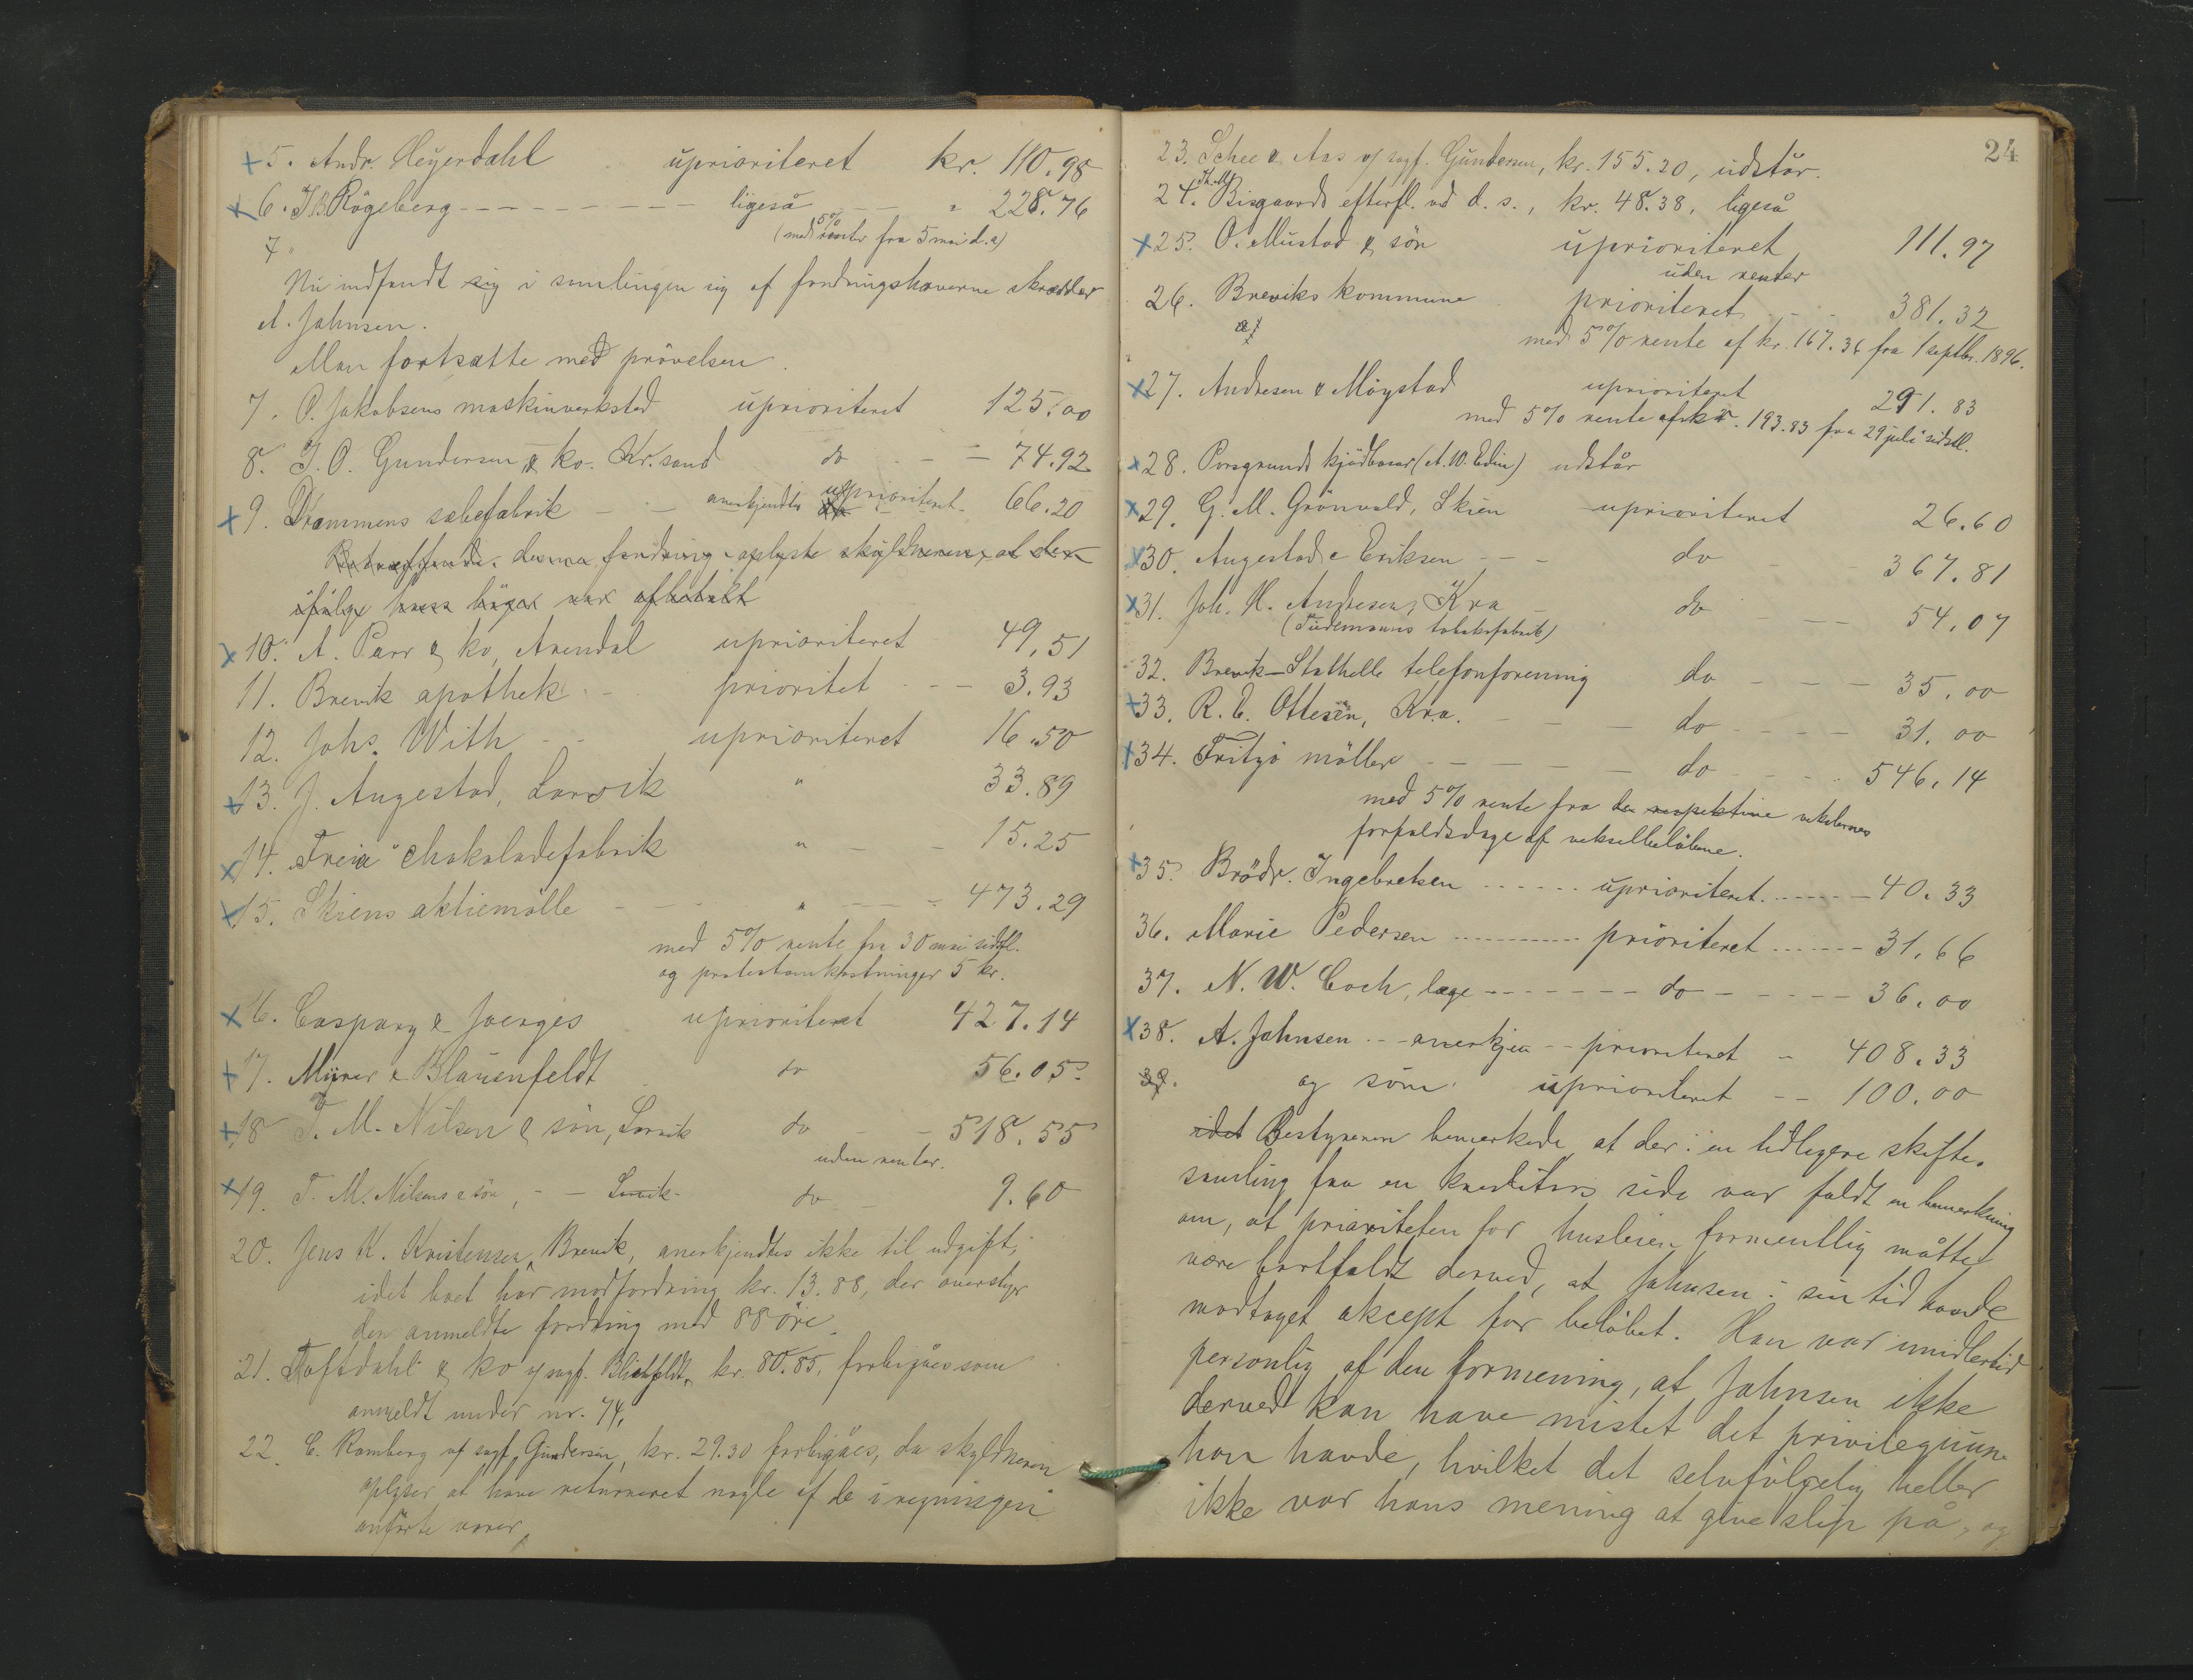 5. Andr. Heyerdahl uprioriteret kr. 110.98
6. J B Rögeberg ligeså " 228.76
(med 5% renter fra 5 mai d. a)
7
Nu indfandt sig i samlingen sig af fordringshaverne skrædder
A. Johnsen.
Man fortsatte med prövelsen.
7. O. Jakobsens maskinverksted uprioriteret 125.00
8. J. O. Gundersen & ko. Kr.sand do 74.92
9. Drammens sæbefabrik anerkjendtes uprioriteret 66.20
Betræffende denne fordring oplyste skyldneren, at den
ifølge hans böger var afbetalt
10. A. Parr & ko, Arendal uprioriteret 49,51
11. Brevik apothek prioritet 3.93
12. Johs. With uprioriteret 16.50
13. J. Angestad, Larvik " 33.89
14. "Freia" Chokoladefabrik " 15.25
15. Skiens aktiemölle " 473.29
med 5% rente fra 30 mai sidstl.
og protestomkostninger 5 kr.
16. Caspary & Joerges uprioriteret 427.14
17. Myrer & Blauenfeldt do 56.05
18 T. M. Nilsen & sön, Larvik do 518.55
uden renter.
19. T. M. Nilsens & sön, Larvik do 9.60
20. Jens K. Kristensen, Brevik, anerkjendtes ikke til udgift,
idet boet har modfordring kr. 13.88, der overstiger
den anmeldte fordring med 88 öre.
21. Toftdahl & ko v/ sagf. Blichfeldt, kr. 80.85, forbigåes som
anmeldt under nr. 74.
22. C. Romberg v/ sagf. Gundersen, kr. 29.30 forbigåes, da skyldneren
oplyser at have returneret nogle af de i regningen
anförte varer.
24
23. Schee & Aas v/ sagf. Gundersen, kr. 155.20, udstår.
24. Th. M. Bisgaards efterfl. ved d. s., kr. 48.38, ligeså
25. O. Mustad & sön uprioriteret 111.97
uden renter
26. Breviks kommune prioriteret 381.32
med 5% rente af kr. 167.36 fra 1 septbr. 1896.
27. Andresen & Möystad uprioriteret 291.83
med 5% rente af kr. 193.83 fra 29 juli sidstl.
28. Porsgrunds kjödbasar (A. W. Edin) udstår
29. G. M. Grönvold, Skien uprioriteret 26.60
30. Angestad & Eriksen do 367.81
31. Joh. H. Andresen, Kra do 54.07
(Tiedemanns tobaksfabrik)
32. Brevik-Stathelle telefonforening do 35.00
33. R. C. Ottesen, Kra. do 31.00
34. Fritzö möller do 546.14
med 5% rente fra de respektive vekslernes
forfaldsdage af vekselbelöbene.
35. Brödr. Ingebretsen uprioriteret 40.33
36. Marie Pedersen prioriteret 31.66
37. N. W. Coch, læge do 36.00
38. A. Johnsen anerkjen prioriteret 408.33
39. og som uprioriteret 100.00
idet Bestyreren bemerkede at der i en tidligere skifte-
samling fra en kreditors side var faldt en bemerkning
om, at prioriteten for husleien formentlig måtte
være bortfaldt derved, at Johnsen i sin tid havde
modtaget akcept for belöbet. Han var imidlertid
personlig af den formening, at Johnsen ikke
derved kan have mistet det privilegium
han havde, hvilket det selvfölgelig heller
ikke var hans mening at give slip på, og